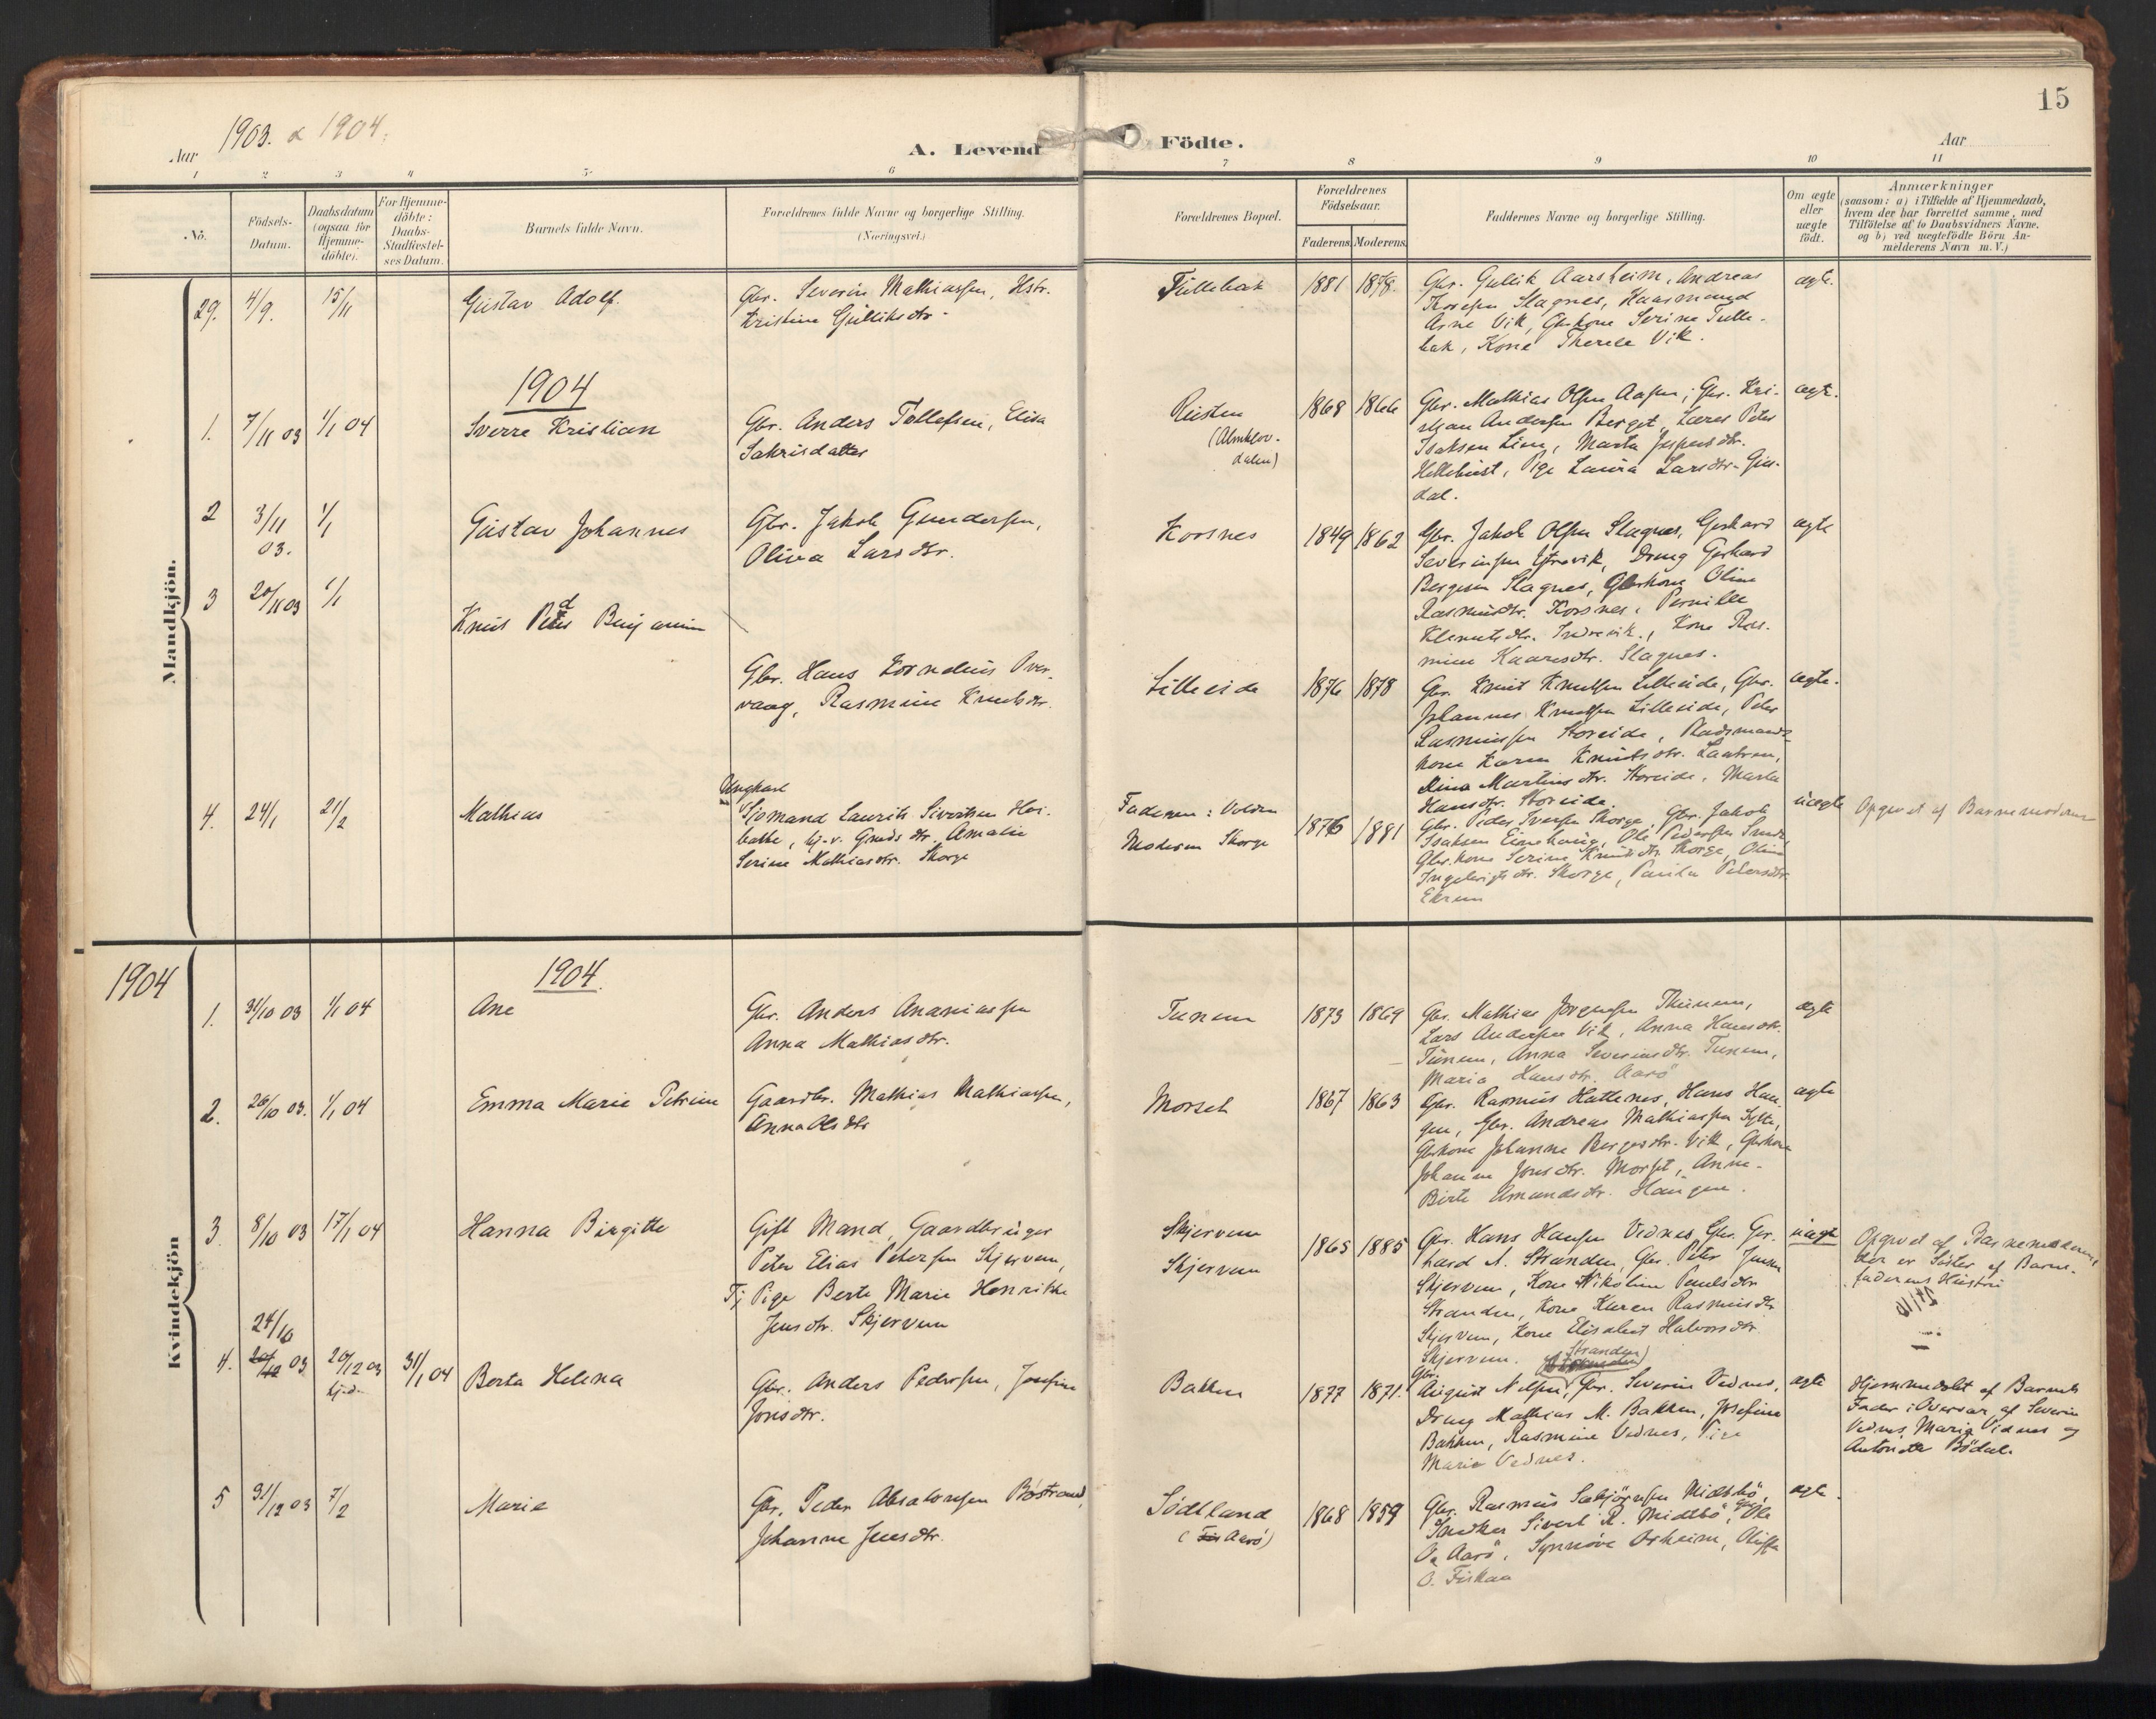 15
Aar 1903. & 1904.
A. Levend Födte.
Aar
1 2 3 4 5 6 7 8 9 10 11
No.
Födsels-Datum.
Daabsdatum (ogsaa for Hjemme-döbte).
For Hjemme-döbte: Daabs-Stadfæstel-ses Datum.
Barnets fulde Navn.
Forældrenes fulde Navne og borgerlige Stilling. (Næringsvei.)
Forældrenes Bopæl.
Forældrenes Födselsaar.
Faderens. Moderens.
Faddernes Navne og borgerlige Stilling.
Om ægte eller uægte födt.
Anmærkninger
(saasom: a) i Tilfælde af Hjemmedaab,
hvem der har forrettet samme, med
Tilföielse af to Daabsvidners Navne.
og b) ved uægtefödte Börn An-
melderens Navn m. V.)
Mandkjön.
29. 4/9. 15/11 Gustav Adolf.
Gbr. Severin Mathiassen, Hstr.
Kristine Gulliksdtr.
Tullebak 1881 1878.
Gbr. Gullik Aarsheim, Andreas
Slagnes, Huusmand
Arne Vik, Gbrkone Serine Tulle-
bak, Kone Vik.
ægte.
1904
1. 7/11 03 1/1 04 Sverre Kristian
Gbr. Anders Tollefsen, Elisa
Sakrisdatter
Rusten
(Almklov-
dalen)
1868 1866
Gbr. Mathias Olsen Aasen, Gbr. Kri-
stjan Andersen Berget, Peter
Isaksen Lien, Marta Jespersdtr.
Pige Laura Larsdtr.
dal.
ægte.
2 3/11 03. 1/1 Gustav Johannes
Gbr. Jakob Gundersen,
Oliva Larsdtr.
Korsnes 1849 1862
Gbr. Jakob Olsen Slagnes, Gerhard
Severinsen Drug Gerhard
Slagnes, Gbrkone Oline
Rasmusdtr. Korsnes, Pernille
Klemetsdtr. Kone Ras-
mine Slagnes.
ægte
3 20/11 03 1/1 Knut Peder Benjamin
Gbr. Hans Kornelius Over-
vaag, Rasmine Knutsdtr.
Lilleeide 1876 1878
Gbr. Knut Knutsen Lilleeide, Gbr.
Johannes Knutsen Lilleeide, Peter
Rasmussen Storeide, Pladsmands-
kone Karen Knutsdtr.
Martinusdtr. Storeide, Marta
Hansdtr. Storeide.
ægte.
4. 24/1 21/2 Mathias
Ungkarl
Sjömand Laurits Sivertsen
Amalie
Serine Mathiasdtr. Skorge
Faderen: Volden
Moderen Skorge
1876 1881
Gbr. Peder Iversen Skorge, Gbr. Jakob
Isaksen Ole Pedersen
Gbr.kone Serine Knutsdtr. Skorge, Oline
Ingebrigtsdtr. Skorge, Petersdtr.
Ekrem
uægte
Opgivet af Barnemoderen
Kvindekjön
1904
1904.
1. 31/10 03 1/1 04 Ane
Gbr. Anders Ananiassen
Anna Mathiasdtr.
Tunem 1873 1869
Gbr. Mathias Jörgensen Thunem,
Lars Andersen Vik, Anna Hansdtr.
Tunem, Anna Severinsdtr. Tunem,
Maria Hansdtr. Aarö
ægte
2. 26/10 03. 1/1 04 Emma Marie Petrine
Gaardbr. Mathias Mathiassen,
Anna Olsdtr
Morseth 1867 1863
Gbr. Rasmus Hatlenes, Hans Hau-
gen, Gbr. Andreas Mathiassen
Gbrkone Johanne Vik, Gbrkone
Johanne Jonsdtr. Morset, Anne-
Birte Amundsdtr. Haugen.
ægte
3. 8/10 03 17/1 04 Hanna Birgitte
Gift Mand, Gaardbruger
Peter Elias Petersen Skjervem,
Tj Pige Berte Marie Henrikke
Jensdtr. Skjervem
Skjervem
Skjervem
1865 1885
Gbr. Hans Hansen Vednes, Gbr. Ger-
hard A. Stranden, Gbr. Peter Jensen
Skjervem, Kone Nikoline Paulsdtr
Stranden, Kone Karen Rasmusdtr
Skjervem, Kone Elisabet Halvorsdtr.
Skjervem.
uægte
Opgivet af Barnemoderen,
der er Söster af Barne-
faderens Hustru
24/10
4. 20/12 03 20/12 03 hj.d. 31/1 04 Berta Helena
Gbr. Anders Pedersen, Josefine
Jonsdtr.
Bakken 1877 1871.
Gbr. (Stranden)
August Nilsen, Gbr. Severin Vednes,
Drug Mathias M. Bakken, Josefine
Bakken, Rasmine Vednes, Pige
Marie Vednes.
ægte
Hjemmedöbt af Barnets
Fader i Overvær af Severin
Vednes, Marie Vednes og
Antonette Bödal.
5 31/12 03 7/2 Marie
Gbr. Peder Absalonsen
Johanne Jensdtr.
Södtland
(Aarö)
1868 1859
Gbr. Rasmus Midtbö,
Snedker Sivert R. Midtbö, Gbr. Ole
O. Aarö, Synnöve Osheim, Oluffa
O. Fiskaa
ægte.